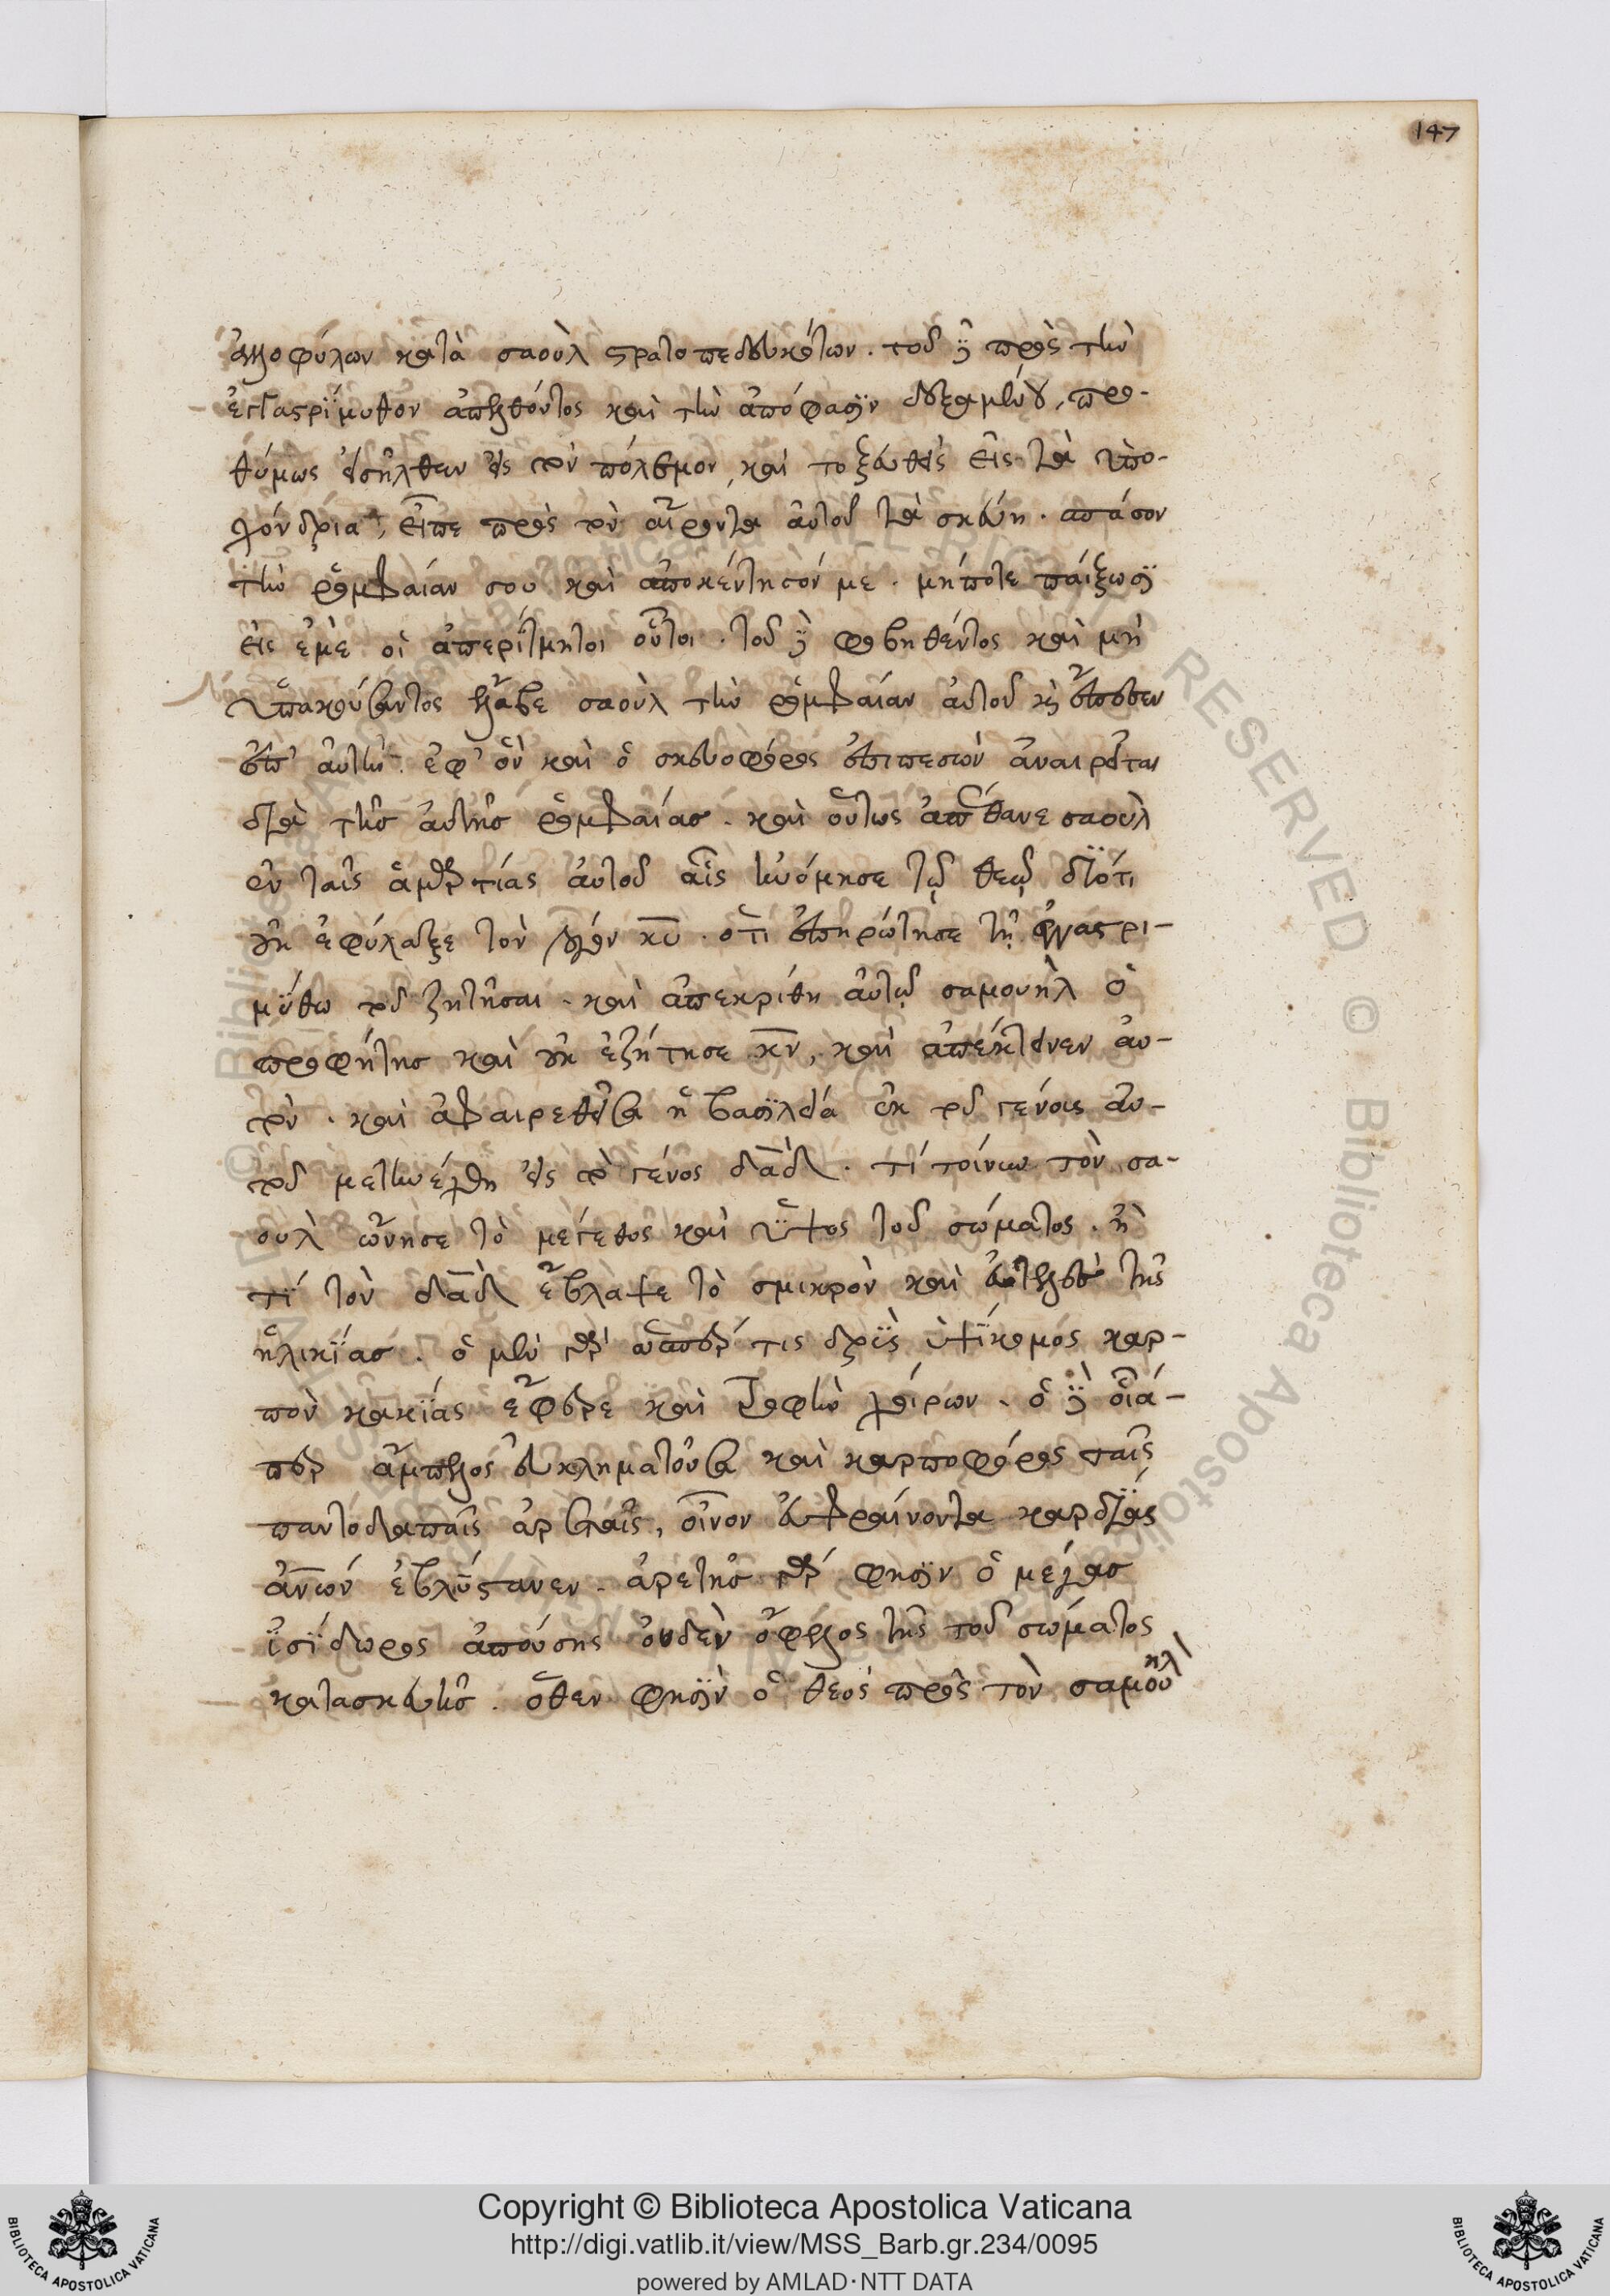 147
ἀλλοφύλων κατὰ σαοὺλ στρατοπεδευκότων. τοῦ δὲ πρὸς τὴν
ἐγγαστρίμυθον ἀπελθόντος καὶ τὴν ἀπόφασϊν δεξαμένου, προ-
θύμως εἰσῆλθεν εἰς τὸν πόλεμον, καὶ τοξευθεὶς εἰς τὰ ὑπο-
χόνδρια, εἶπε πρὸς τὸν αἴροντα αὐτοῦ τὰ σκεύη. σπάσον
τὴν ῥομφαίαν σου καὶ ἀποκέντησόν με. μήποτε παίξωσϊ
εἰς ἐμὲ οἱ ἀπερίτμητοι οὗτοι. τοῦ δὲ φοβηθέντος καὶ μὴ
ὑπακούσαντος ἔλαβε σαοὺλ τὴν ῥομφαίαν αὐτοῦ κὶ ἔπεσεν
ἐπ' αὐτήν. ἐφ' ὃν καὶ ὁ σκευοφόρος ἐπιπεσὼν ἀναιρεῖται
διὰ τῆς αὐτῆς ῥομφαίας. καὶ οὕτως ἀπέθανε σαοὺλ
ἐν ταῖς ἁμαρτίαις αὐτοῦ αἷς ἠνόμησε τῷ θεῷ διότι
οὐκ ἐφύλαξε τὸν λόγον κυ. ὅτι ἐπηρώτησε τῇ ἐγγαστρι-
μύθω τοῦ ζητῆσαι. καὶ ἀπεκρίθη αὐτῷ σαμουὴλ ὁ
προφήτης καὶ οὐκ ἐζήτησε κν, καὶ ἀπέκτεινεν αὐ-
τὸν. καὶ ἀφαιρεθεῖσα ἡ βασϊλεία ἐκ τοῦ γένους αὐ-
τοῦ μετηνέχθη εἰς τὸ γένος δαδ. τί τοίνυν τὸν σα-
οὺλ ὤνησε τὸ μέγεθος καὶ ὕψος τοῦ σώματος. ἢ
τί τὸν δαδ ἔβλαψε τὸ σμικρὸν καὶ εὐτελὲς τῆς
ἡλικίας. ὁ μὲν γὰρ ὥσπερ τις δρῦς ὑψίκομος καρ-
πὸν κακίας ἔφερε καὶ τροφὴν χοίρων. ὁ δὲ οἷά-
περ ἄμπελος εὐκληματοῦσα καὶ καρποφόρος ταῖς
παντοδαπαῖς ἀρεταῖς, οἶνον εὐφραίνοντα καρδίας
ἀνων ἐβλύστανεν. ἀρετῆς γὰρ φησὶν ὁ μέγας
ἰσίδωρος ἀπούσης οὐδὲν ὄφελος τῆς τοῦ σώματος
κατασκευῆς. ὅθεν φησὶν ὁ θεὸς πρὸς τὸν σαμουηλ
Copyright © Biblioteca Apostolica Vaticana
http://digi.vatlib.it/view/MSS_Barb.gr.234/0095
powered by AMLAD·NTT DATA
BIBLIOTECA APOSTOLICA VATICANA
BIBLIOTECA APOSTOLICA VATICANA